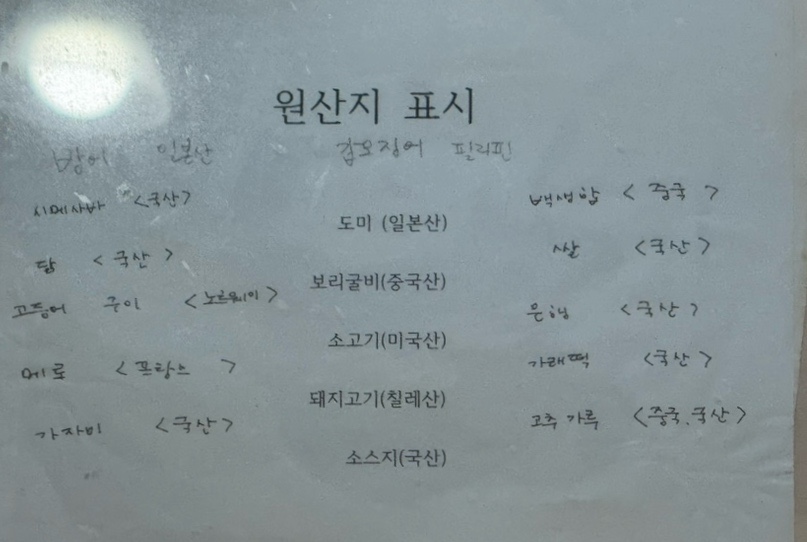 원산지 표시
방어 일본산
갑오징어 필리핀
시메사바 <국산>
닭 <국산>
고등어 구이 <노르웨이>
메로 <프랑스>
가자미 <국산>
도미 (일본산)
보리굴비(중국산)
소고기(미국산)
돼지고기(칠레산)
소스지(국산)
백생합 <중국>
쌀 <국산>
은행 <국산>
가래떡 <국산>
고추가루 <중국.국산>